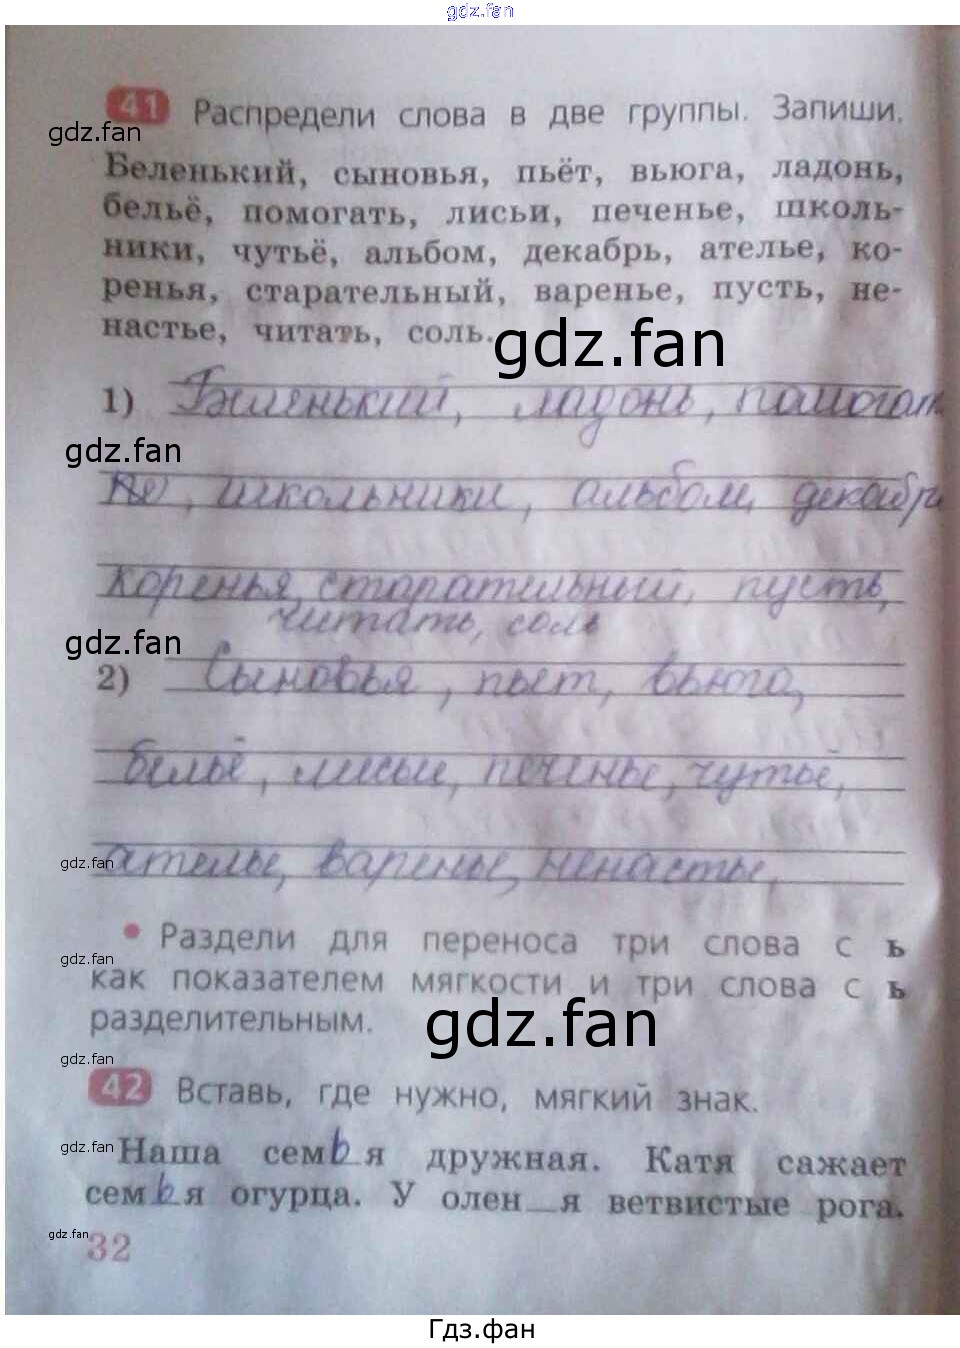 gdz.fan
41 Распредели слова в две группы. Запиши.
gdz.fan
Беленький, сыновья, пьёт, вьюга, ладонь,
бельё, помогать, лисьи, печенье, школь-
ники, чутьё, альбом, декабрь, ателье, ко-
ренья, старательный, варенье, пусть, не-
настье, читать, соль.
gdz.fan
1) Беленький, ладонь, помогать
gdz.fan
, школьники, альбом, декабрь
коренья, старательный, пусть,
читать, соль
gdz.fan
2) Сыновья, пьет, вьюга,
бельё, лисьи, печенье, чутьё,
gdz.fan
ателье, варенье, ненастье,
• Раздели для переноса три слова с ь
gdz.fan
как показателем мягкости и три слова с ь
разделительным.
gdz.fan
gdz.fan
42 Вставь, где нужно, мягкий знак.
gdz.fan
Наша семь_я дружная. Катя сажает
семь_я огурца. У олен_я ветвистые рога.
gdz.fan
32
Гдз.фан